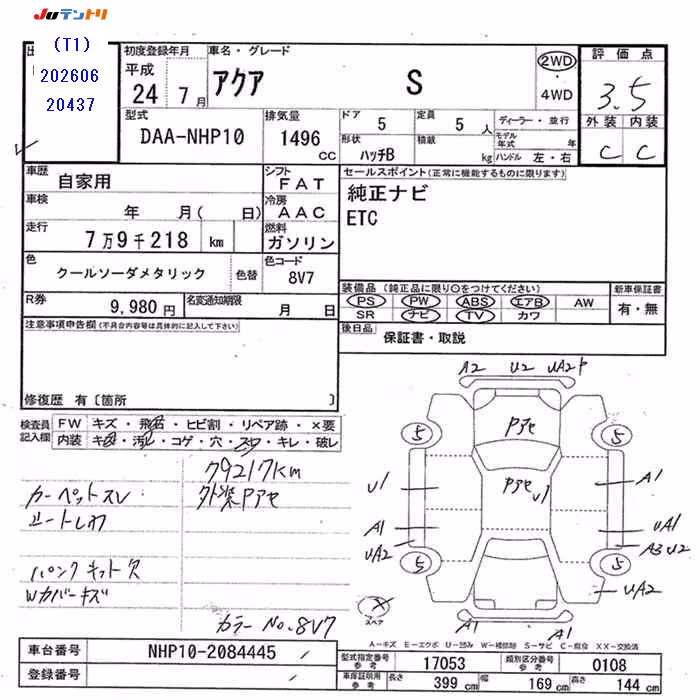 Juテントリ
(T1)
202606
20437
初度登録年月
平成
24 7月
車名・グレード
アクア S
2WD
・
4WD
評価点
3.5
外装 内装
C C
型式
DAA-NHP10
排気量
1496
cc
ドア 5
形状 ハッチB
定員 5 人
積載 kg
ディーラー・並行
モデル年式 年
ハンドル 左・右
車歴 自家用
車検 年 月( 日)
走行 7万9千218 km
シフト FAT
冷房 AAC
燃料 ガソリン
色 クールソーダメタリック 色替
色コード 8V7
R券 9,980円
名変通知期限 月 日
セールスポイント(正常に機能するものに限ります)
純正ナビ
ETC
装備品 (純正品に限り○をつけてください)
PS PW ABS エアB AW
SR ナビ TV カワ
新車保証書
有・無
後日品 保証書・取説
注意事項申告欄(不具合内容等は具体的に記入して下さい)
修復歴 有〔箇所 〕
検査員記入欄
FW キズ・飛石・ヒビ割・リペア跡・×要
内装 キズ・汚れ・コゲ・穴・スレ・キレ・破レ
79217km
カーペットスレ
外装Pアセ
シートしわ
パンクキット欠
Wカバーキズ
カラーNo.8V7
A2 U2 UA2
Pアセ
5 5
Pアセ
U1 U1 A1
A1 UA1
UA2 A3 U2
5 5
UA2
スペア
A1 A1
A-キズ E-エクボ U-凹み W-補修跡 S-サビ C-腐食 XX-交換済
車台番号 NHP10-2084445
登録番号
型式指定番号 参考 17053
類別区分番号 参考 0108
車庫証明用 参考 長さ 399 cm 幅 169 cm 高さ 144 cm